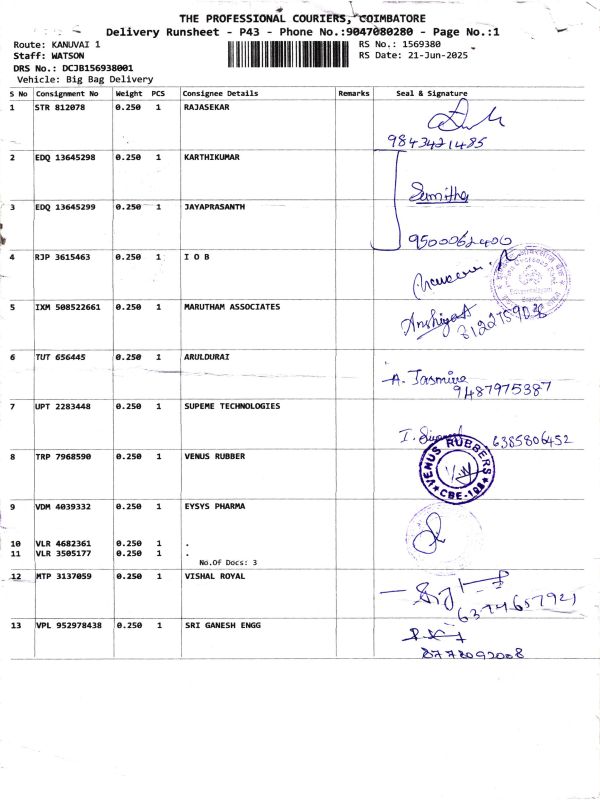 THE PROFESSIONAL COURIERS, COIMBATORE
Delivery Runsheet - P43 - Phone No.:9047080280 - Page No.:1
Route: KANUVAI 1 RS No.: 1569380
Staff: WATSON RS Date: 21-Jun-2025
DRS No.: DCJB156938001
Vehicle: Big Bag Delivery
S No Consignment No Weight PCS Consignee Details Remarks Seal & Signature
1 STR 812078 0.250 1 RAJASEKAR
9843421485
2 EDQ 13645298 0.250 1 KARTHIKUMAR
Sumitha
3 EDQ 13645299 0.250 1 JAYAPRASANTH
9500062400
4 RJP 3615463 0.250 1 I O B
5 IXM 508522661 0.250 1 MARUTHAM ASSOCIATES
6 TUT 656445 0.250 1 ARULDURAI
A. Jasmine
9487975387
7 UPT 2283448 0.250 1 SUPEME TECHNOLOGIES
6385806452
8 TRP 7968590 0.250 1 VENUS RUBBER
VENUS RUBBERS
CBE-108
9 VDM 4039332 0.250 1 EYSYS PHARMA
10 VLR 4682361 0.250 1 .
11 VLR 3505177 0.250 1 .
No.Of Docs: 3
12 MTP 3137059 0.250 1 VISHAL ROYAL
6374657921
13 VPL 952978438 0.250 1 SRI GANESH ENGG
8778092008